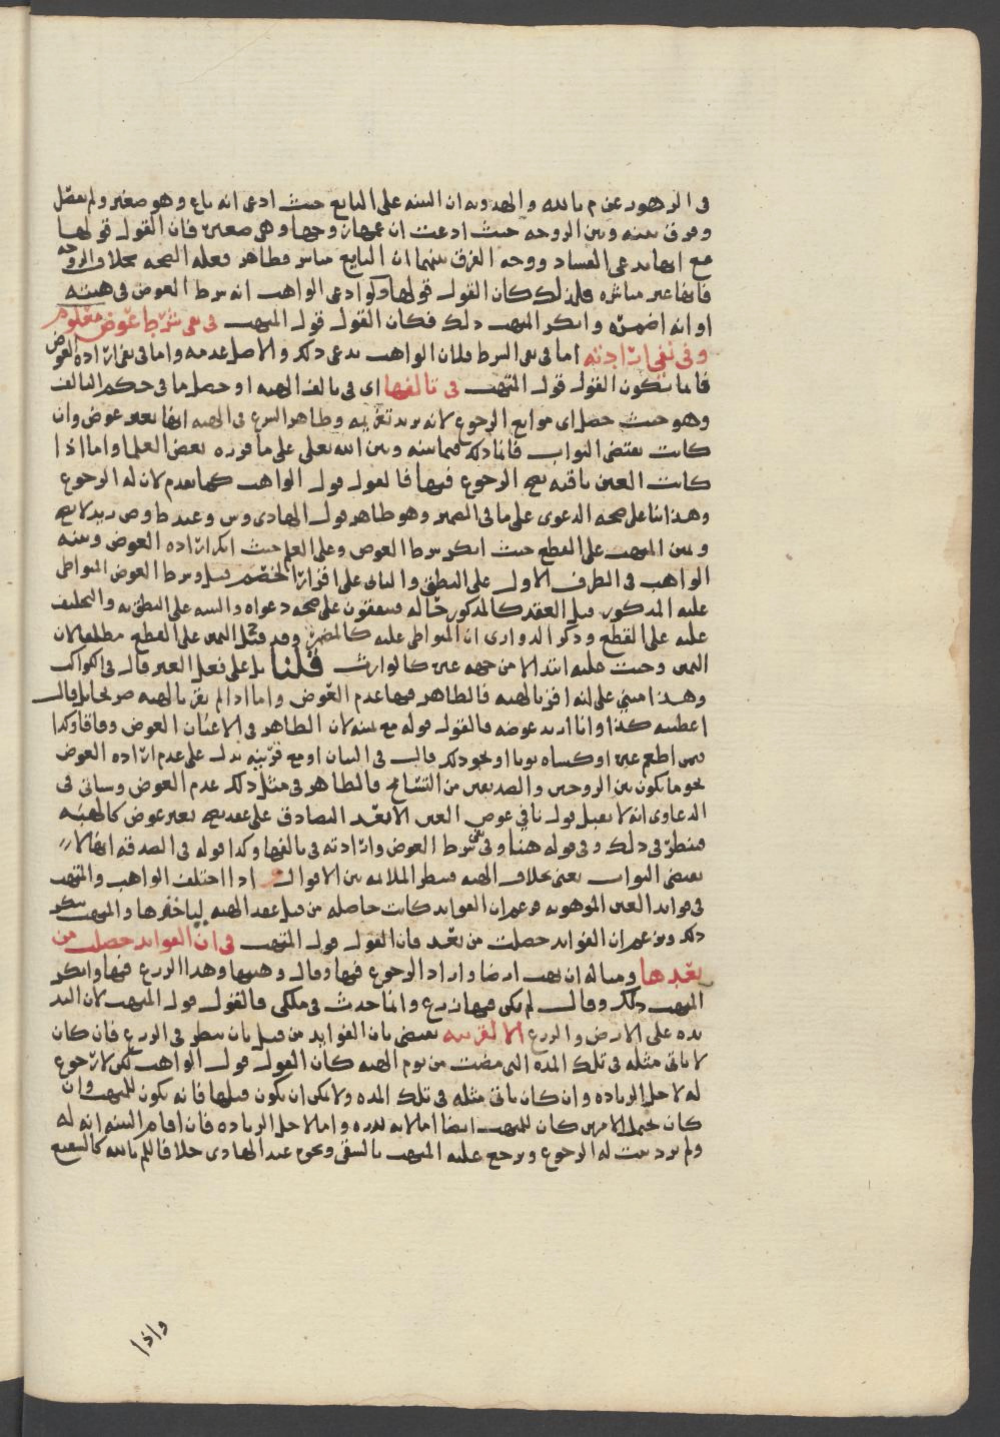 في الزهور عن م بالله والهدويه ان البينه على البايع حيث ادعى انه باع وهو صغير ولم يفصل
وفرق بينه وبين الزوجه حيث ادعت ان عمها زوجها وهي صغيره فان القول قولها
مع انها تدعي الفساد ووجه الفرق بينهما ان البايع مباشر فظاهر فعله الصحه بخلاف الزوجه
فانها غير مباشره فلذلك كان القول قولها وكذا لو ادعى الواهب انه شرط العوض في هبته
او انه اضمره وانكر المتهب ذلك فكان القول قول المتهب في نفي شرط عوض معلوم
وفي نفي ارادته اما في نفي الشرط فلان الواهب يدعي ذلك والاصل عدمه واما في نفي ارادة العوض
فانما يكون القول قول المتهب في تالفها اي في تالف الهبه او حصل ما في حكم التالف
وهو حيث حصل احد موانع الرجوع لانه يريد تغريمه وظاهر الشرع في الهبه انها بغير عوض وان
كانت تقتضي الثواب فانما ذلك فيما بينه وبين الله تعالى على ما قرره بعض العلما واما اذا
كانت العين باقيه يصح الرجوع فيها فالقول قول الواهب كما تقدم لان له الرجوع
وهذا بنا على صحه الدعوى على ما في الضمير وهو ظاهر قول الهادي وس وعند ط وص زيد لا يصح
ويمين المتهب على القطع حيث انكر شرط العوض وعلى العلم حيث انكر ارادة العوض وبينه
الواهب في الطرف الاول على النطق والثاني على اقرار الخصم قيل وشرط العوض المتواطى
عليه المذكور قبل العقد كالمذكور حاله فيتفقون على صحه دعواه والبينه على النطق به والتحليف
عليه على القطع وذكر الدواري ان المتواطى عليه كالمضمر وقد قيل اليمين على القطع مطلقا لان
اليمين وجبت عليه ابتدا لا من جهه غيره كالوارث قلنا بل على فعل الغير قال في الكواكب
وهذا مبني على انه اقر بالهبه فالظاهر فيها عدم العوض واما اذا لم يقر بالهبه صريحا بل قال
اعطيته كذا وانا اريد عوضه فالقول قوله مع يمينه لان الظاهر في الاعيان العوض وفاقا وكذا
فيمن اطعم غيره او كساه ثوبا او نحو ذلك قال في البيان او مع قرينه تدل على عدم ارادة العوض
نحو ما يكون بين الزوجين والصديقين من التسامح فالظاهر في مثل ذلك عدم العوض وسياتي في
الدعاوي انه لا يقبل قول نافي عوض العين الا بعد التصادق على عقد يصح بغير عوض كالهبه
فينظر في ذلك وفي قوله هنا وفي نفي شرط العوض وارادته في تالفها وكذا قوله في الصدقه انها لا
تقتضي الثواب يعني بخلاف الهبه فينظر الملائمه بين الاقوال اذا اختلف الواهب والمتهب
في فوائد العين الموهوبه فزعم ان الفوايد كانت حاصله من قبل عقد الهبه لياخذها والمتهب ينكر
ذلك ويزعم ان الفوايد حصلت من بعد فان القول قول المتهب في ان الفوايد حصلت من
بعدها ومثاله ان يهب ارضا واراد الرجوع فيها وقال وهبتها وهذا الزرع فيها وانكر
المتهب ذلك وقال لم يكن فيها زرع وانما حدث في ملكي فالقول قول المتهب لان اليد
يده على الارض والزرع الا لقرينه تقتضي بان الفوايد من قبل بان ينظر في الزرع فان كان
لا ياتي مثله في تلك المده التي مضت من يوم الهبه كان القول قول الواهب لكن لا رجوع
له لاجل الزياده وان كان ياتي مثله في تلك المده ولا يمكن ان يكون قبلها فانه يكون للمتهب وان
كان يحتمل الامرين كان للمتهب ايضا اما لانه بذره واما لاجل الزياده فان اقام البينه انه له
ولم يزد ثبت له الرجوع ويرجع عليه المتهب بالسقي ونحوه عند الهادي خلافا للم بالله كالشفيع
واذا